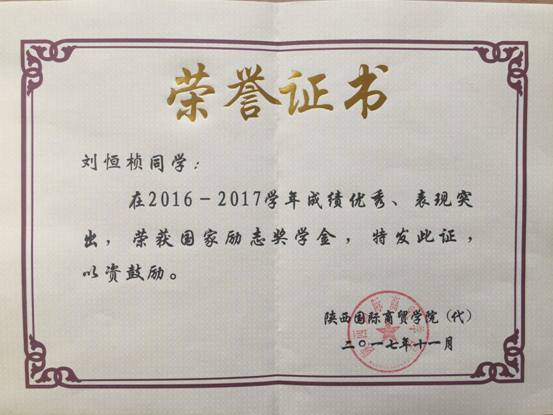 荣誉证书
刘恒桢同学：
在2016－2017学年成绩优秀、表现突
出，荣获国家励志奖学金，特发此证，
以资鼓励。
陕西国际商贸学院（代）
二〇一七年十一月